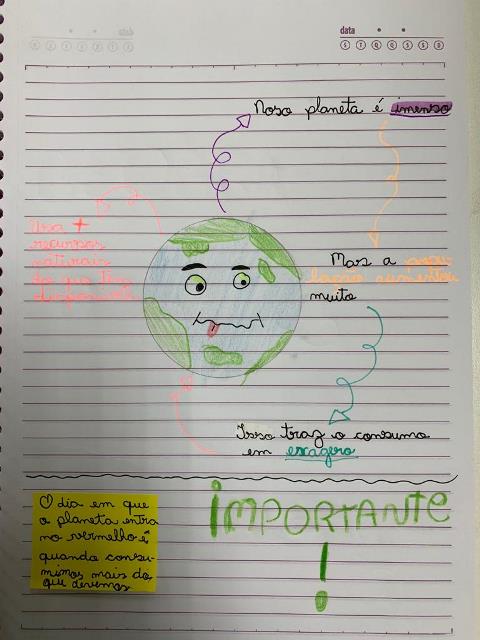 data
S T Q Q S S D
Noso planeta é imenso
Usa +
recursos
naturais
do que tem
disponível
Mas a popu-
lação aumentou
muito
Isso traz o consumo
em exagero
O dia em que
o planeta entra
no vermelho é
quando consu-
mimos mais do
que devemos
IMPORTANTE
!